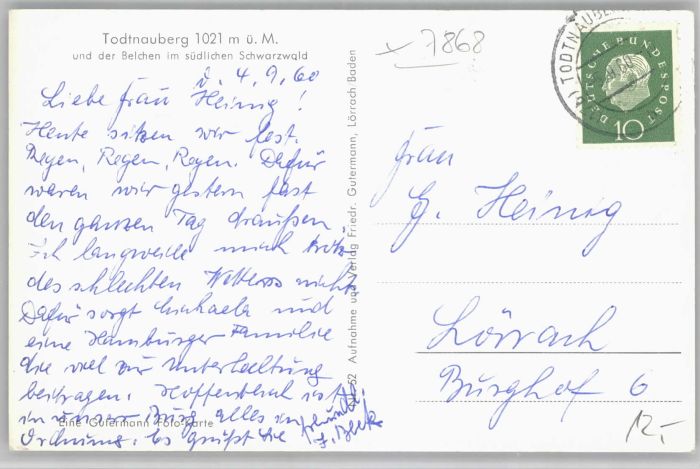 Todtnauberg 1021 m ü. M.
und der Belchen im südlichen Schwarzwald
d. 4. 9. 60
Liebe Frau Heinig!
Heute sitzen wir fest.
Regen, Regen, Regen. Dafür
waren wir gestern fast
den ganzen Tag draußen.
Ich langweile mich trotz
des schlechten Wetters nicht.
Dafür sorgt Michaela und
eine Hamburger Familie
die viel zur Unterhaltung
beitragen. Hoffentlich ist
in unserer Burg alles in
Ordnung. Es grüßt Sie
Eine Gutermann Foto-Karte
Aufnahme und Verlag Friedr. Gutermann, Lörrach/Baden
7868
TODTNAUBERG
DEUTSCHE BUNDESPOST
10
Frau
G. Heinig
Lörrach
Burghof 6
12,-